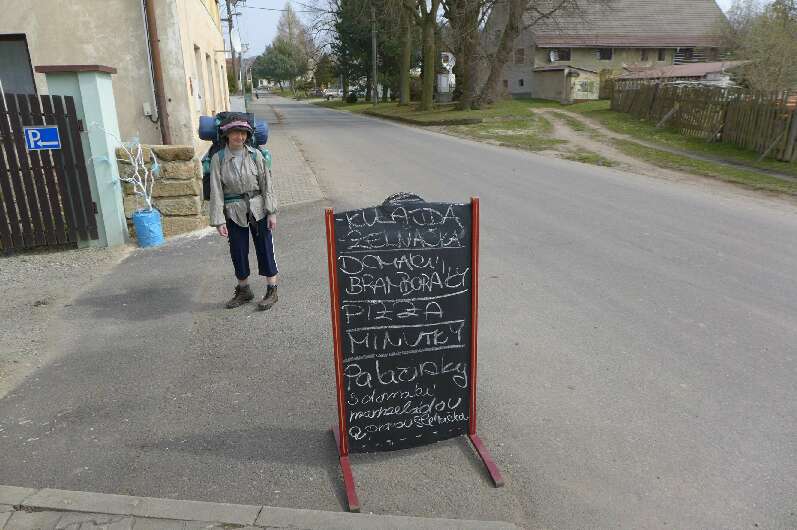 P
KULAJDA
ZELNAČKA
DOMÁCÍ
BRAMBORÁKY
PIZZA
MINUTKY
Palačinky
s domácí
marmeládou